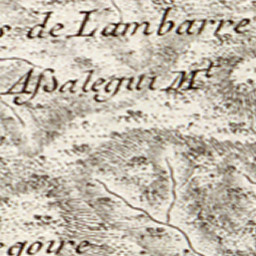 s de Lambarre
Assalegui M.t
egoire